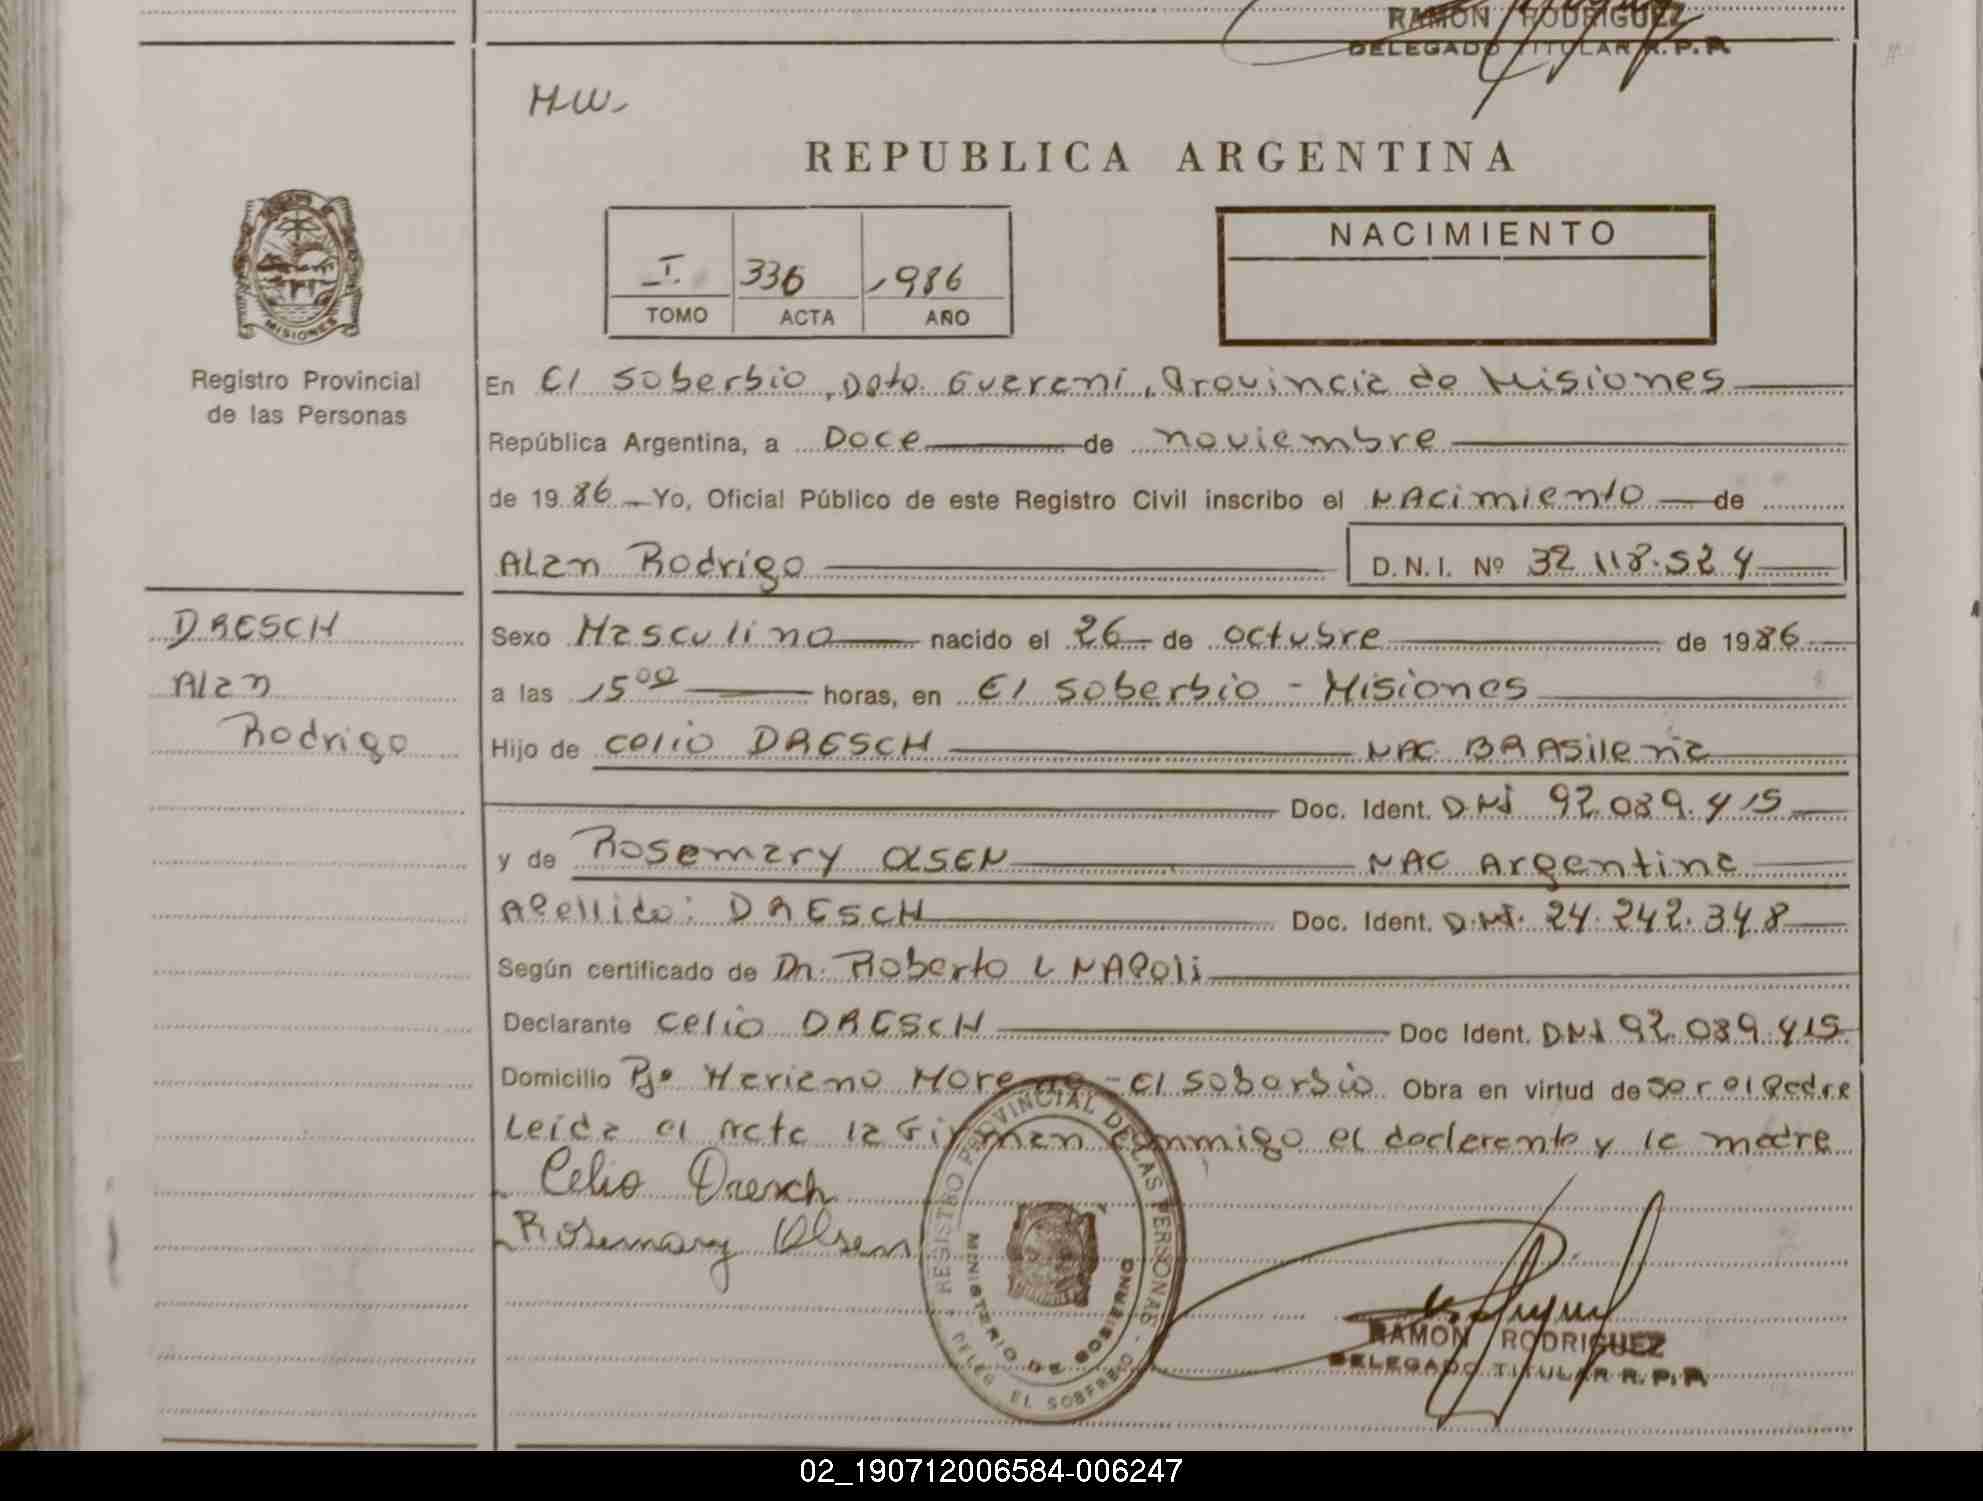 RAMON RODRIGUEZ
DELEGADO TITULAR R.P.P.
H.W.
REPUBLICA ARGENTINA
NACIMIENTO
I. 336 1986
TOMO ACTA AÑO
MISIONES
Registro Provincial
de las Personas
En El Soberbio, Dpto. Guarani, Provincia de Misiones
República Argentina, a Doce de noviembre
de 1986 Yo, Oficial Público de este Registro Civil inscribo el NAcimiento de
Alan Rodrigo D.N.I. Nº 32.118.524
DRESCH
Alan
Rodrigo
Sexo Masculino nacido el 26 de octubre de 1986
a las 15 00 horas, en El Soberbio - Misiones
Hijo de Celio DRESCH NAC BRASileña
Doc. Ident. DNI 92.089.415
y de Rosemary OLSEN NAC Argentina
Apellido: DRESCH Doc. Ident. D.NI. 24.242.348
Según certificado de Dr. Roberto L NAPoli
Declarante Celio DRESCH Doc Ident. DNI 92.089.415
Domicilio Pje Mariano Moreno - El Soberbio Obra en virtud de ser el Padre
Leída el Acta la firman conmigo el declarante y la madre
Celio Dresch
Rosemary Olsen
REGISTRO PROVINCIAL DE LAS PERSONAS
MINISTERIO DE GOBIERNO
DELEG. EL SOBERBIO
RAMON RODRIGUEZ
DELEGADO TITULAR R.P.P.
02_190712006584-006247